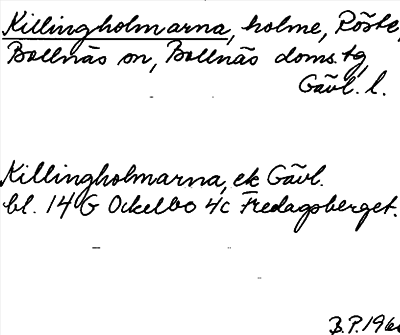 Killingholmarna, holme, Röste,
Bollnäs sn, Bollnäs doms.tg,
Gävl. l.
Killingholmarna, ek Gävl.
bl. 14 G Ockelbo 4c Fredagsberget.
B.P.196